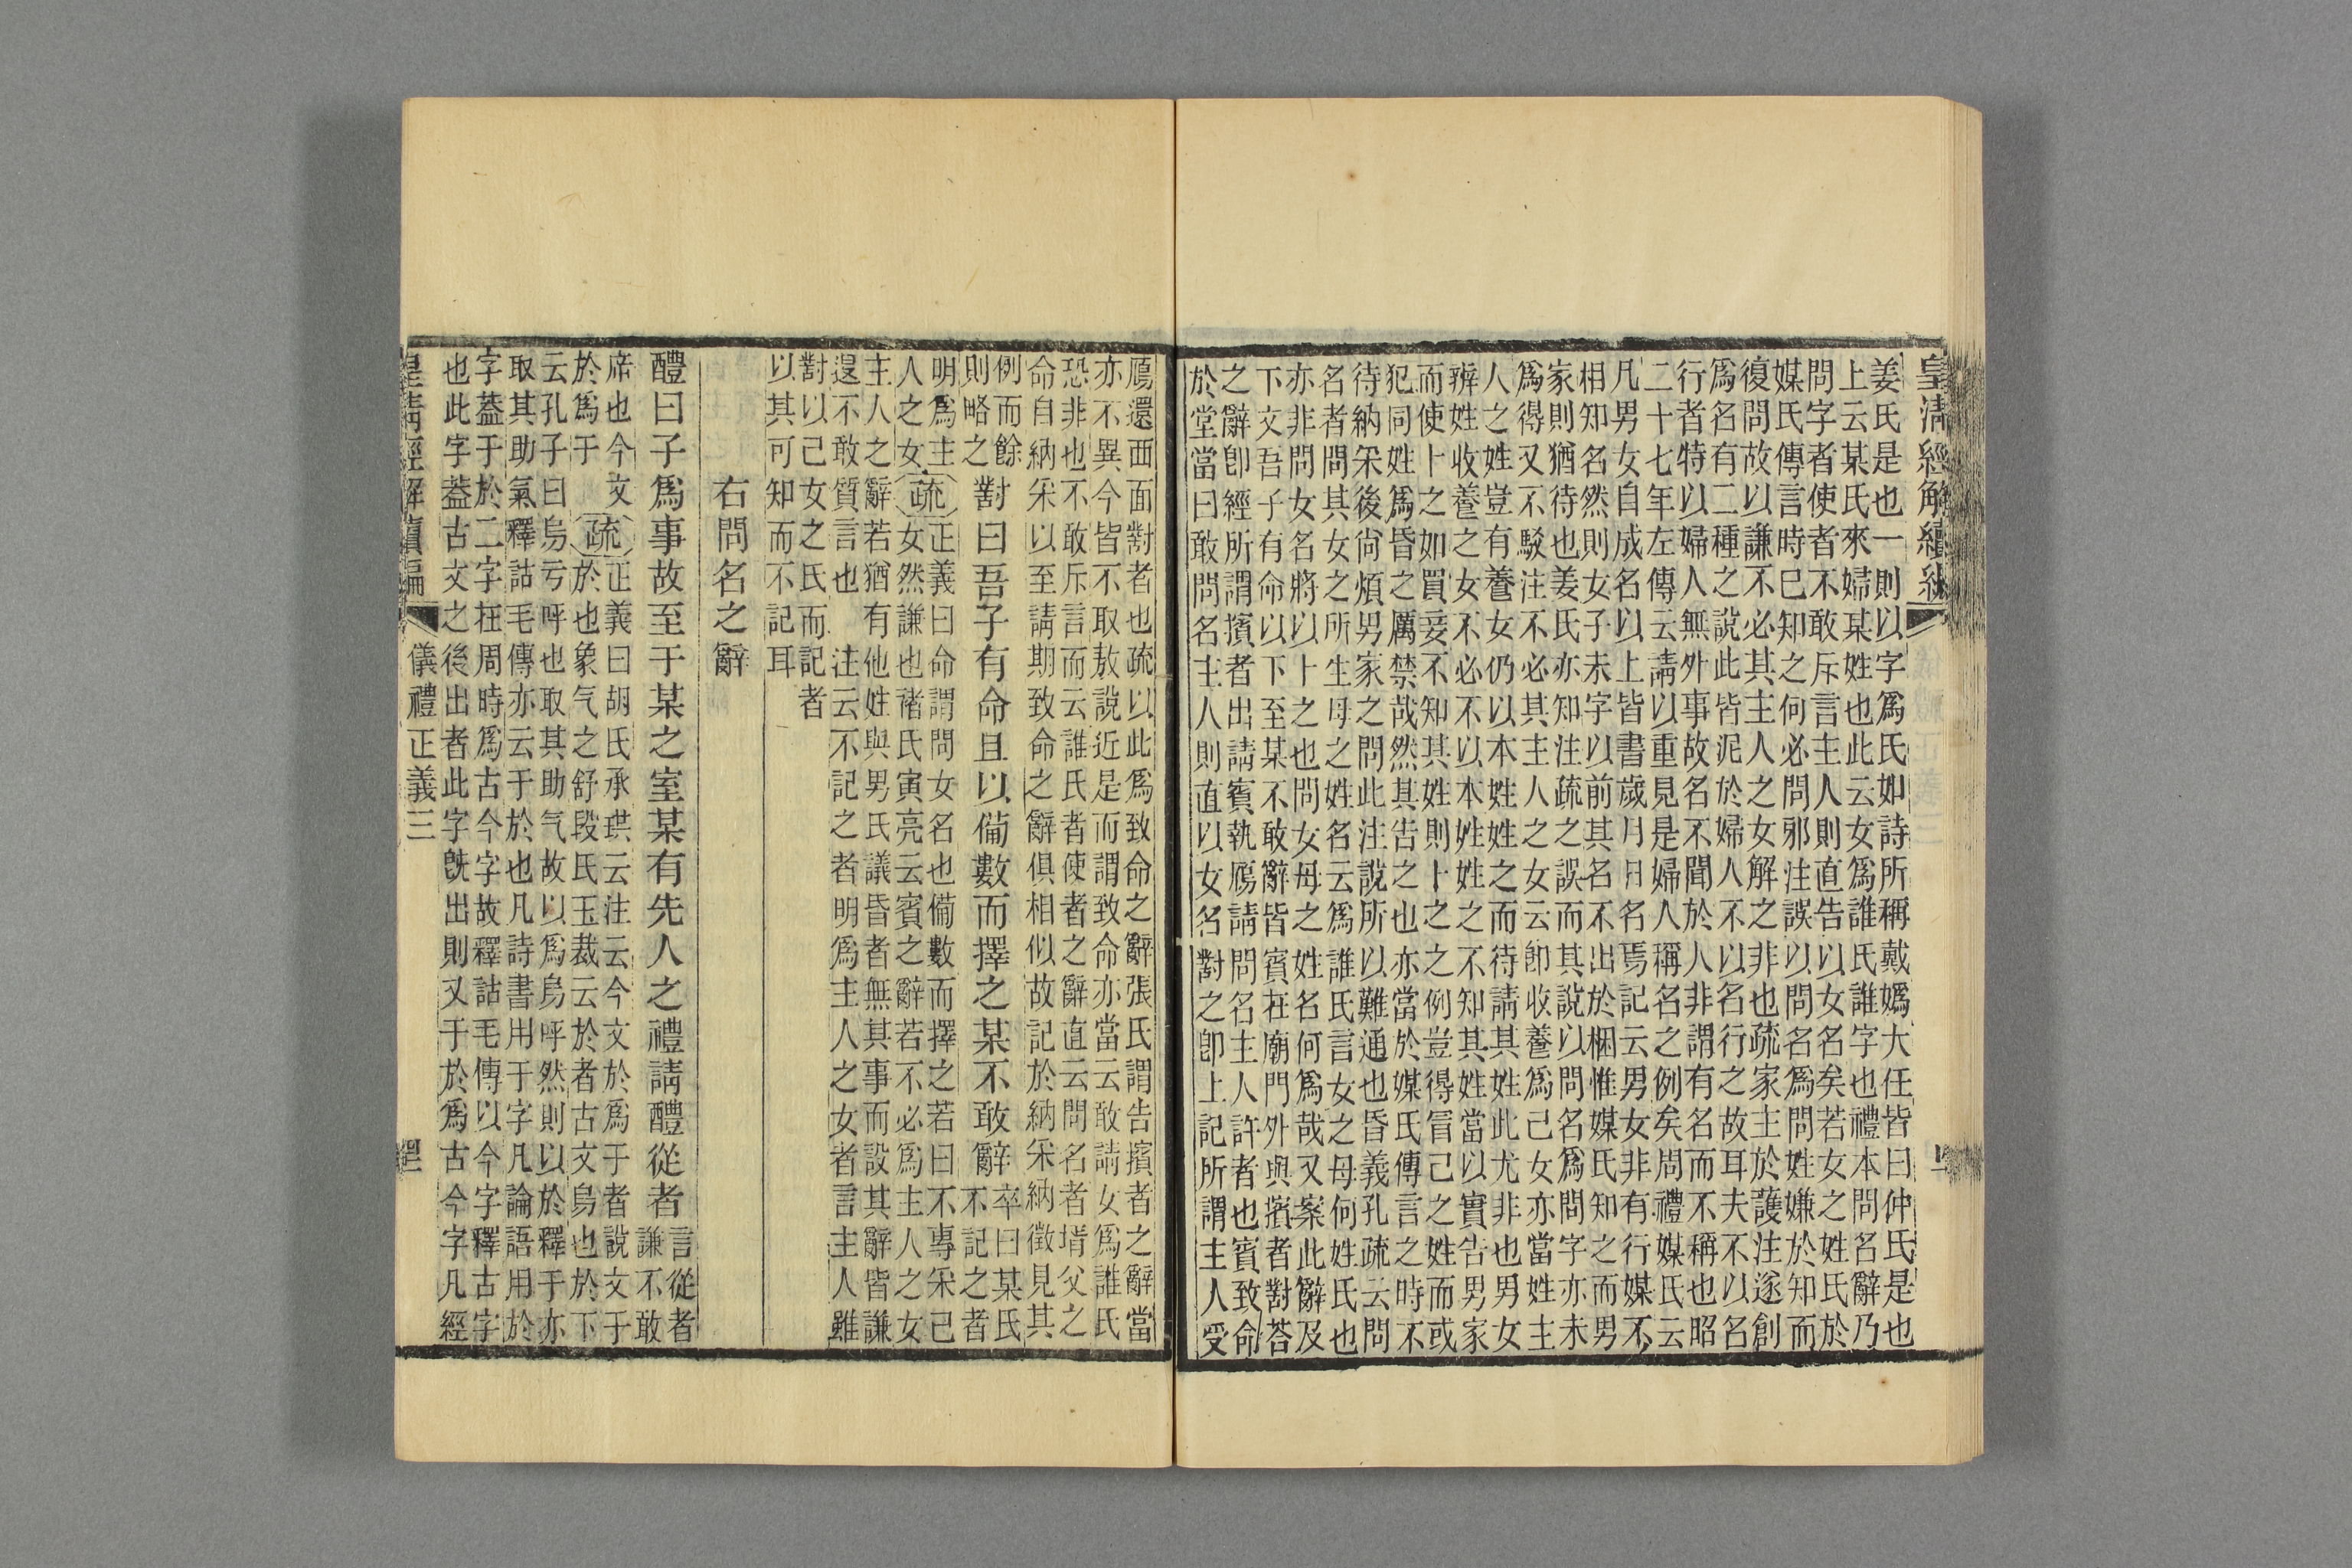 皇清經解續編
姜氏是也一則以字爲氏如詩所稱戴嬀大任皆曰仲氏是也
上云某氏來婦某姓也此云女爲誰氏誰字也禮本問名辭乃
問字者使者不敢斥言主人則直告以女名矣若女之姓氏於
媒氏傳言時巳知之何必問邪注誤以問名爲問姓嫌於知而
復問故以謙不必其主人之女解之非也疏家主於護注遂創
爲名有二種之說此皆泥於婦人不以名行之故耳夫不以名
行者特以婦人無外事故名不聞於人非謂有名而不稱也昭
二十七年左傳云請以重見是婦人稱名之例矣周禮媒氏云
凡男女自成名以上皆書歲月日名焉記云男女非有行媒不
相知名然則女子未字以前其名不出於梱惟媒氏知之而男
家則猶待也姜氏亦知注疏之誤而其說以問名爲問字亦未
爲得又不駁注不必其主人之女云卽收養爲己女亦當姓主
人之姓豈有養女仍以本姓姓之而待請其姓此尤非也男女
辨姓收養之女不必不以本姓姓之不知其姓當以實告男家
而使卜之如買妾不知其姓則卜之之例豈得冒己之姓而或
犯同姓爲昏之厲禁哉然其告之也亦當於媒氏傳言之時不
待納采後尙煩男家之問此注說所以難通也昏義孔疏云問
名者問其女之所生母之姓名云爲誰氏言女之母何姓氏也
亦非問女名將以卜之也問女母之姓名何爲哉又案此辭及
下文吾子有命以下至某不敢辭皆賓在廟門外與擯者對荅
之辭卽經所謂擯者出請賓執鴈請問名主人許者也賓致命
於堂當曰敢問名主人則直以女名對之卽上記所謂主人受
鴈還西面對者也疏以此爲致命之辭張氏謂告擯者之辭當
亦不異今皆不取敖說近是而謂致命亦當云敢請女爲誰氏
恐非也不敢斥言而云誰氏者使者之辭直云問名者壻父之
命自納采以至請期致命之辭俱相似故記於納采納徵見其
例而餘則略之 對曰吾子有命且以備數而擇之某不敢辭 卒曰某氏不記之者
明爲主人之女 疏 正義曰命謂問女名也備數而擇之若曰不專采己
人之女然謙也褚氏寅亮云賓之辭若不必爲主人之女
主人之辭若猶有他姓與男氏議昏者無其事而設其辭皆謙
遑不敢質言也 注云不記之者明爲主人之女者言主人雖
對以己女之氏而記者
以其可知而不記耳
右問名之辭
醴曰子爲事故至于某之室某有先人之禮請醴從者 言從者謙不敢
席也今文於爲于 疏 正義曰胡氏承珙云注云今文於爲于者說文于
於也象气之舒段氏玉裁云於者古文烏也於下
云孔子曰烏亏呼也取其助气故以爲烏呼然則以於釋于亦
取其助氣釋詁毛傳亦云于於也凡詩書用于字凡論語用於
字葢于於二字在周時爲古今字故釋詁毛傳以今字釋古字
也此字葢古文之後出者此字旣出則又于於爲古今字凡經
皇清經解續編 儀禮正義三